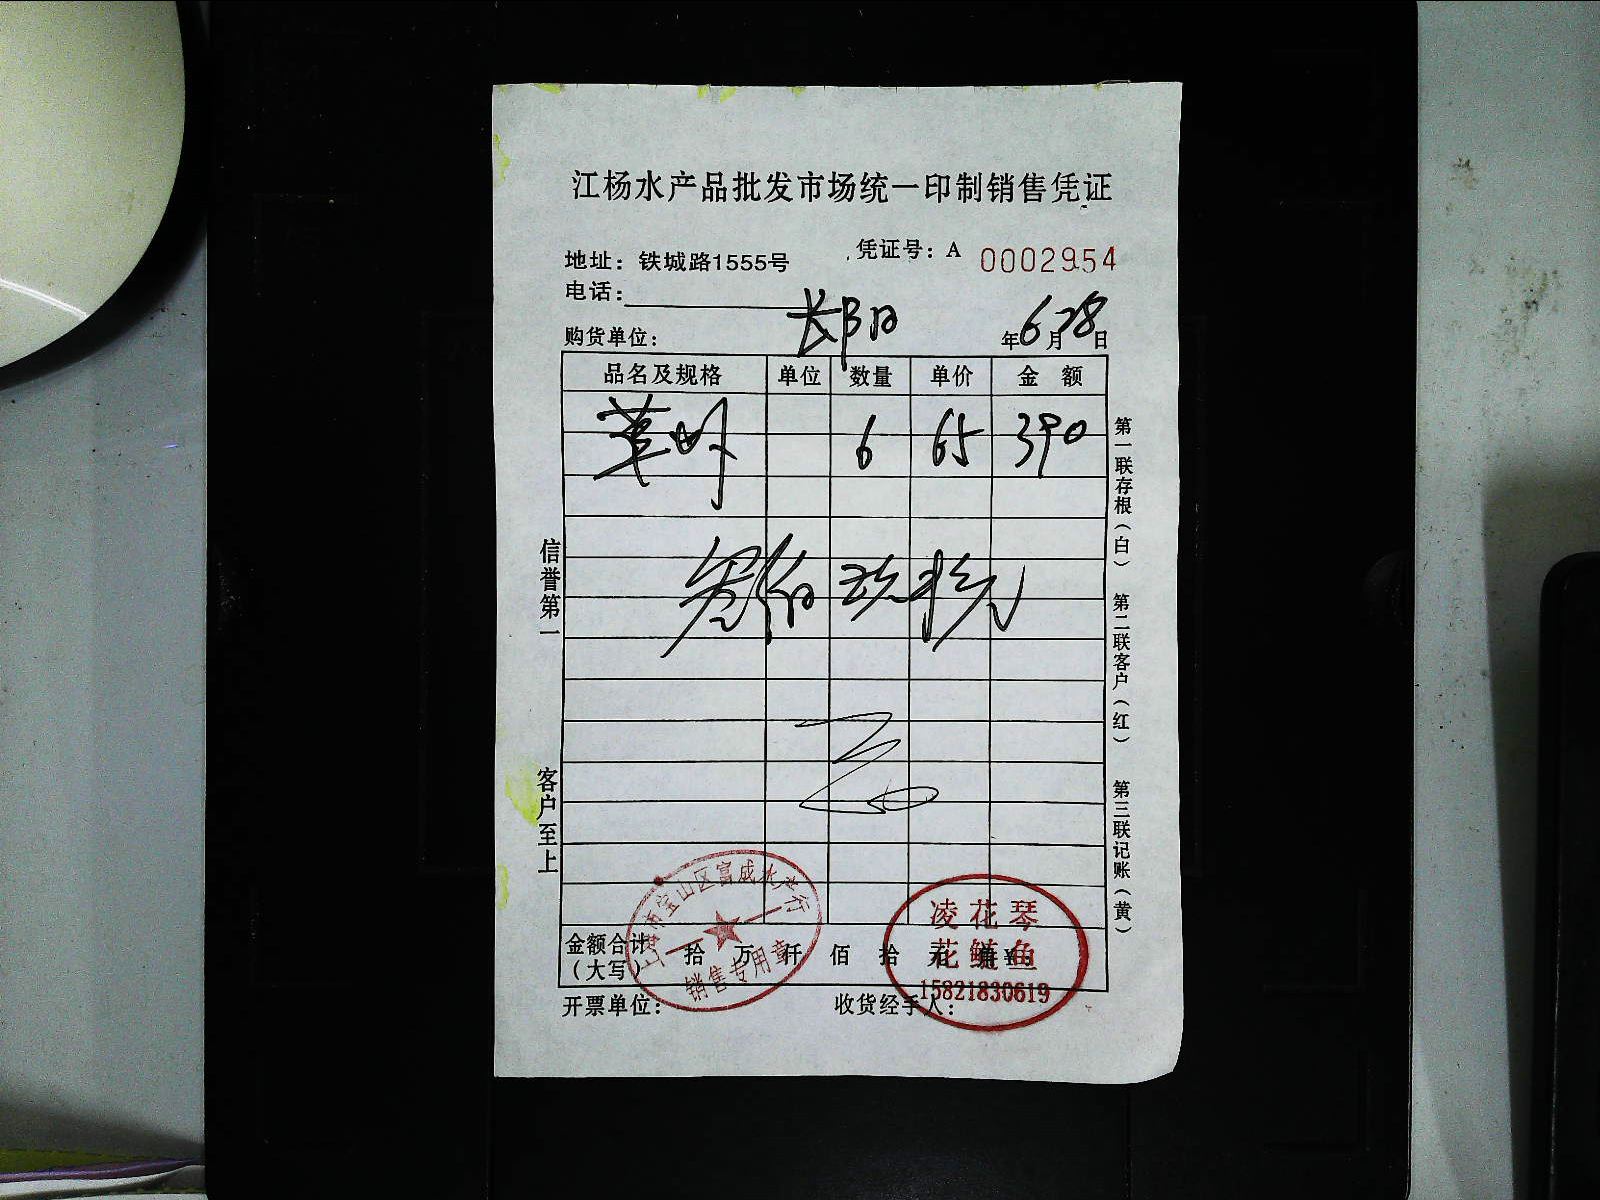 江杨水产品批发市场统一印制销售凭证
地址：铁城路1555号
凭证号：A 0002954
电话：
购货单位：
年6月28日
品名及规格 单位 数量 单价 金额
6 65 390
叁佰玖拾元
信誉第一
客户至上
第一联存根（白）
第二联客户（红）
第三联记账（黄）
金额合计（大写） 拾 万 仟 佰 拾 元
开票单位：
收货经手人：
上海市宝山区富成水产行
销售专用章
凌花琴
花鲢鱼
15821830619